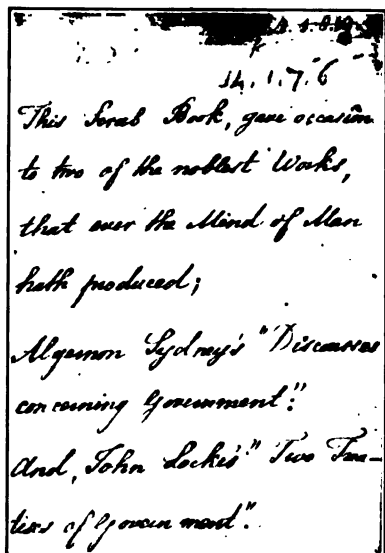 14.1.7.6
This Scrub Book, gave occasion
to two of the noblest Works,
that ever the Mind of Man
hath produced;
Algernon Sydney's "Discourses
concerning Government":
And, John Locke's "Two Trea-
tises of Government".